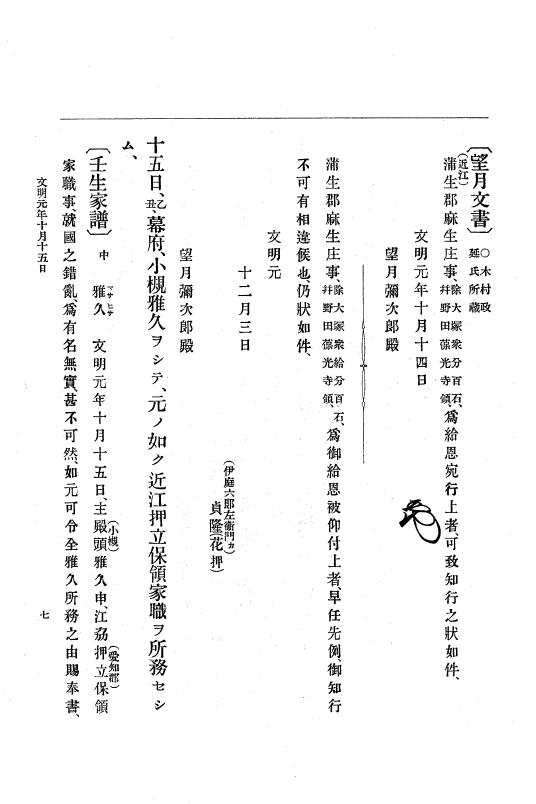 〔望月文書〕○木村政延氏所藏
(近江)
蒲生郡麻生庄事、除大塚衆分百石、幷野田葆光寺領、爲給恩宛行上者、可致知行之狀如件、
文明元年十月十四日
望月彌次郎殿
蒲生郡麻生庄事、除大塚衆給分百石、幷野田葆光寺領、爲御給恩被仰付上者、早任先例、御知行
不可有相違候也、仍狀如件、
文明元
十二月三日
(伊庭六郎左衞門カ)
貞隆(花押)
望月彌次郎殿
十五日、乙丑、幕府、小槻雅久ヲシテ、元ノ如ク近江押立保領家職ヲ所務セシ
ム、
〔壬生家譜〕中 雅久 文明元年十月十五日、主殿頭雅久申、江刕押立保領
マサヒサ
(小槻)
(愛知郡)
家職事、就國之錯亂、爲有名無實、甚不可然、如元可令全雅久所務之由賜奉書、
文明元年十月十五日
七